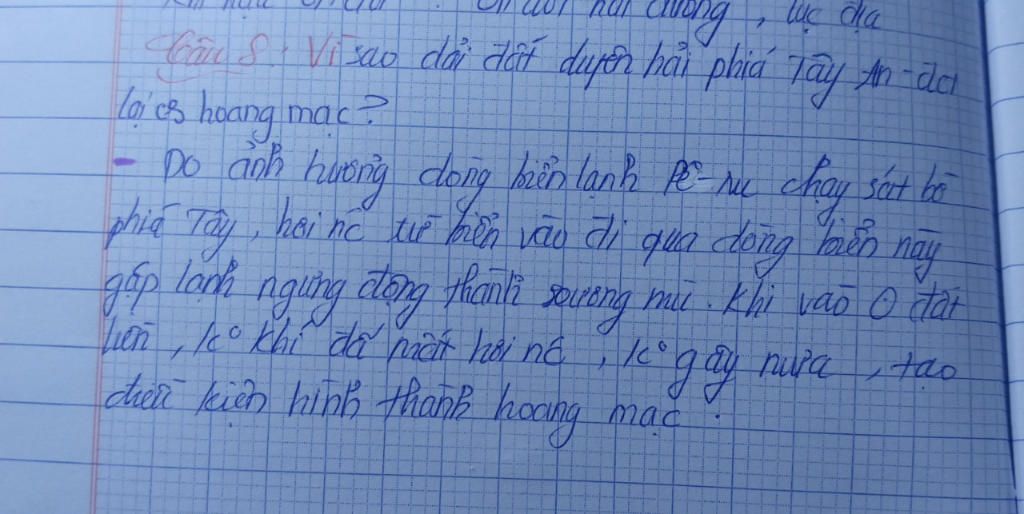 ôn đới hải dương, lục địa
Câu 8: Vì sao dải đất duyên hải phía Tây An-đet
lại có hoang mạc?
- Do ảnh hưởng dòng biển lạnh Pê-ru chạy sát bờ
phía Tây, hơi nc từ biển vào đi qua dòng biển này
gặp lạnh ngưng đọng thành sương mù. Khi vào đất
liền, ko khí đã mất hơi nc, ko gây mưa, tạo
điều kiện hình thành hoang mạc.